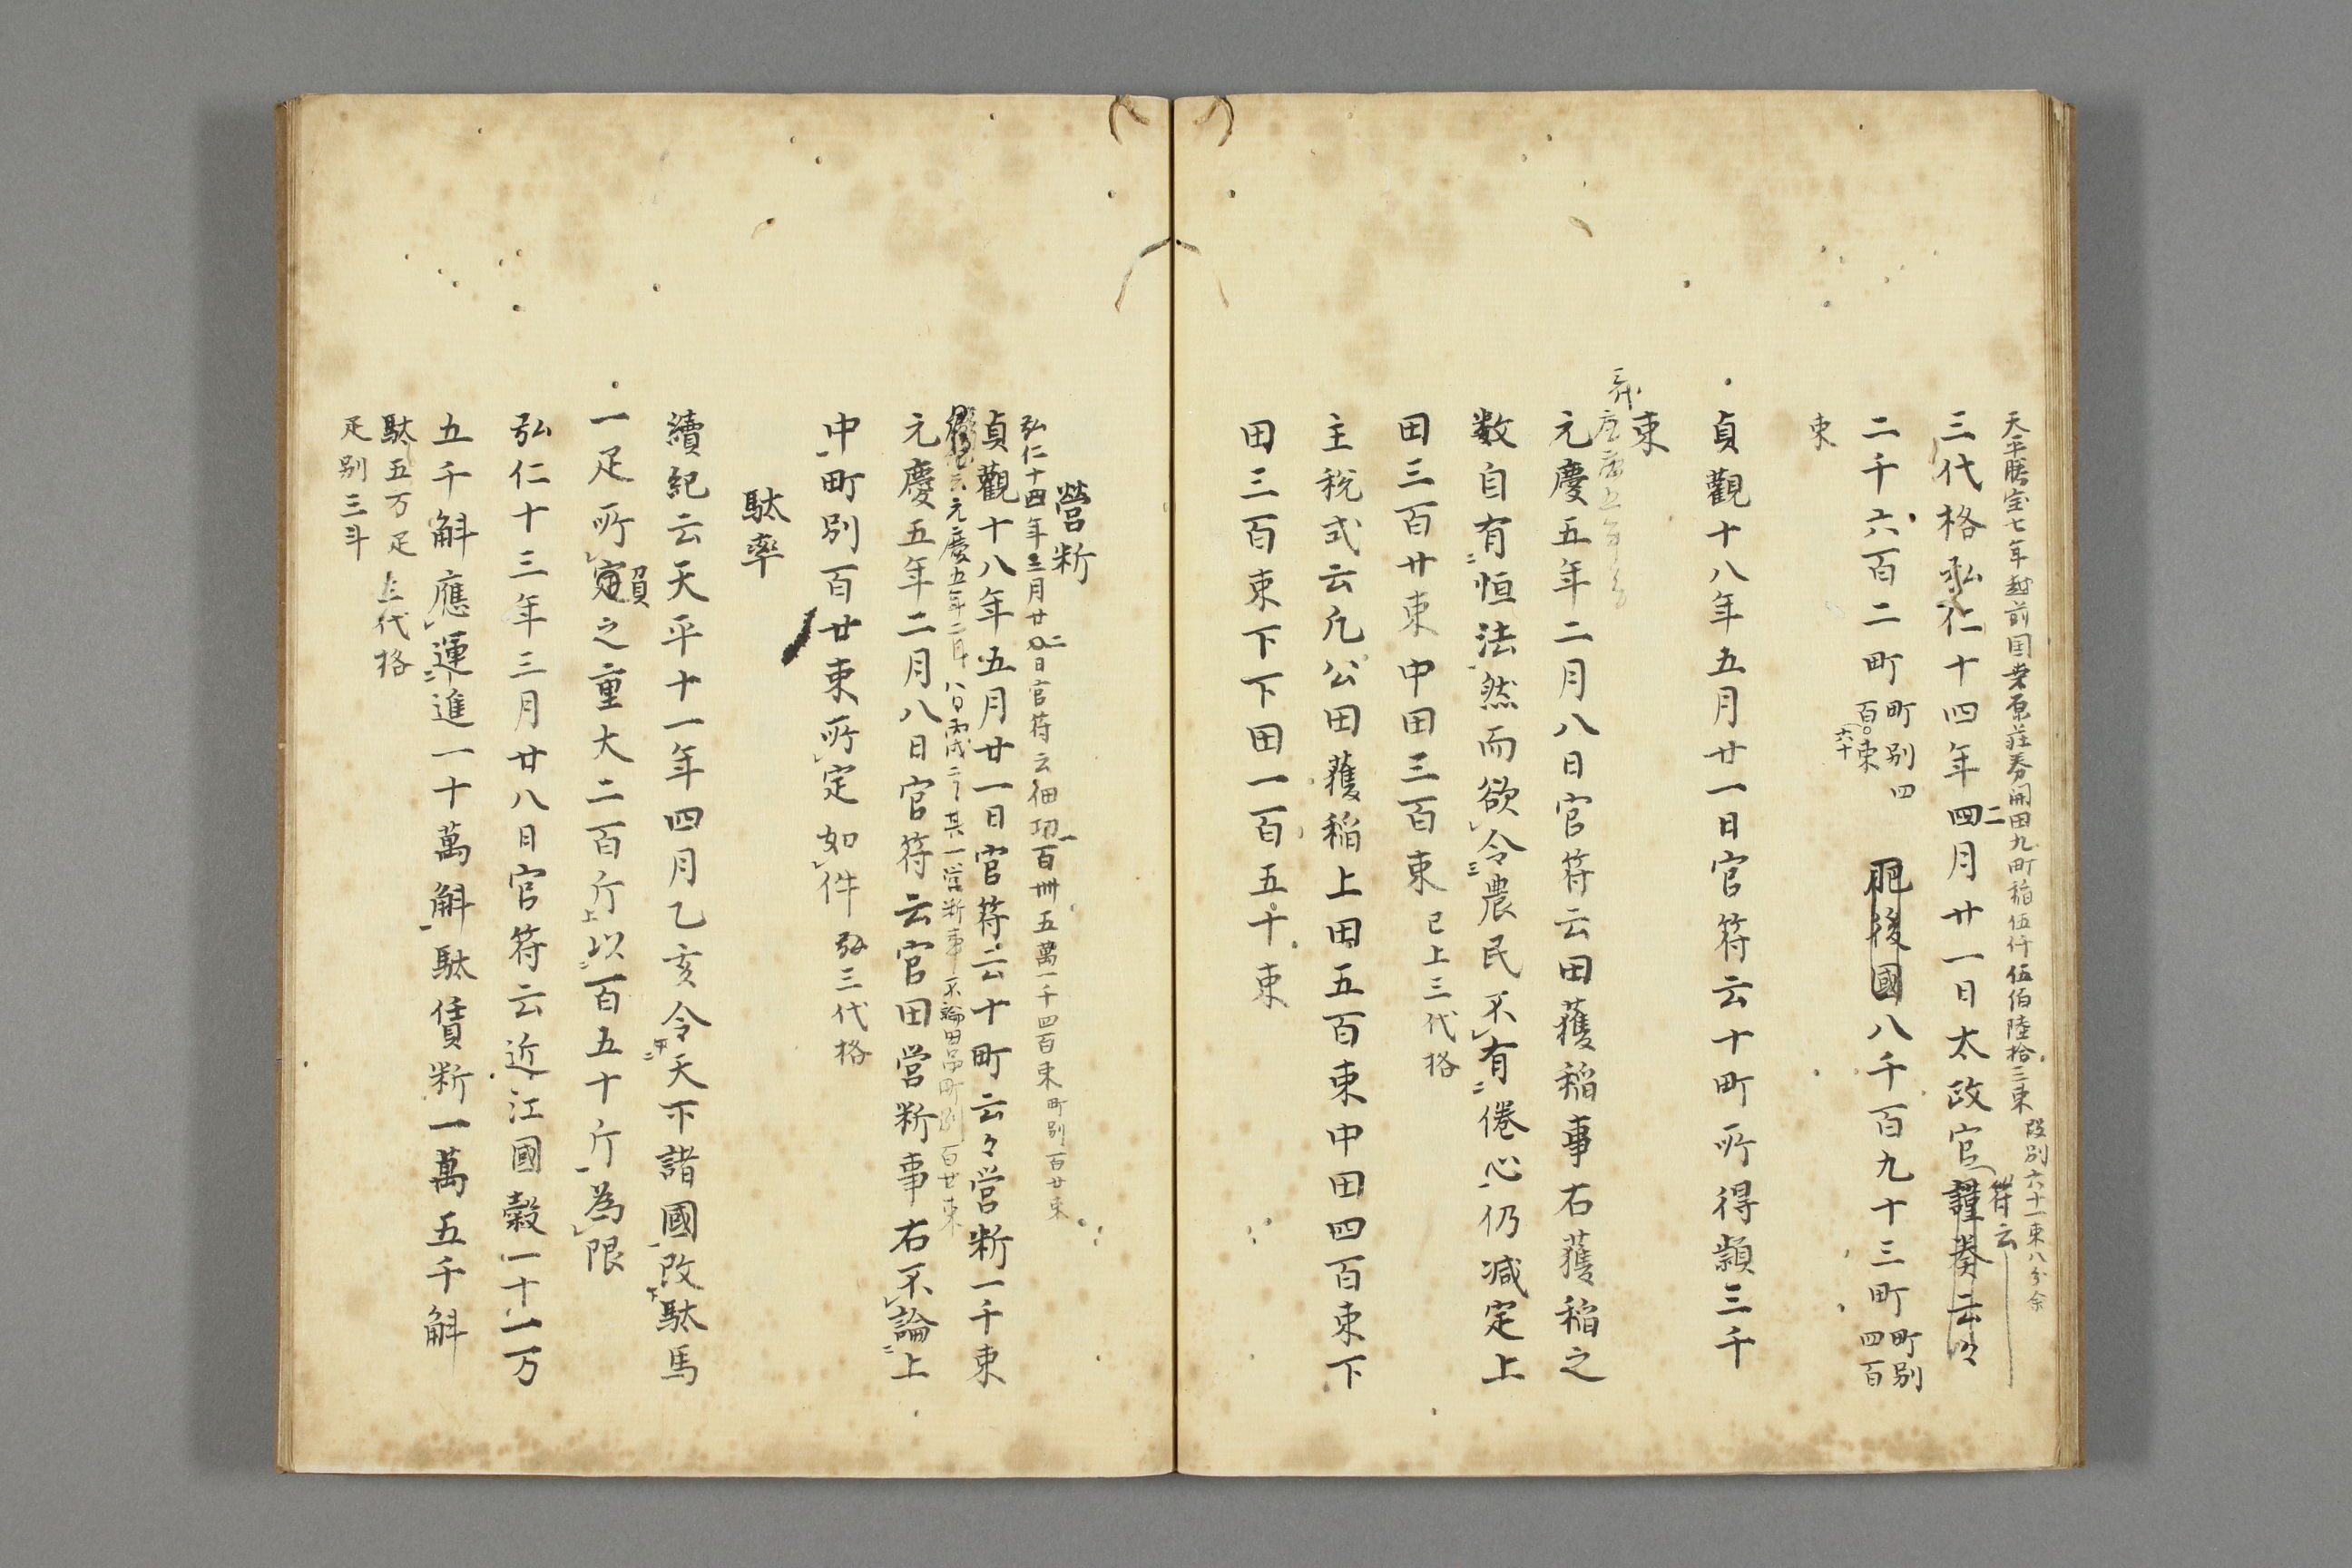 天平勝宝七年越前国桒原莊券開田九町稲伍仟伍伯陸拾三束 段別六十一束八分余
三代格弘仁十四年四二月廿一日太政官謹奏云々
符云
二千六百二町 町別四百六十束 肥後國八千百九十三町 町別四百
束
貞觀十八年五月廿一日官符云十町所得穎三千
束
元慶五年二月八日官符云田獲稲事右獲稲之
数自有恒法然而欲令農民不有倦心仍減定上
田三百廿束中田三百束 已上三代格
主税式云凡公田獲稲上田五百束中田四百束下
田三百束下下田一百五十束
營斯
弘仁十四年二月廿二日官符云佃功一百卌五萬一千四百束 町別百廿束
貞觀十八年五月廿一日官符云十町云々営斯一千束
元慶五年二月八日丙戌 其一営斯事不論田品町別百廿束
元慶五年二月八日官符云官田営斯事右不論上
中町別百廿束所定如件 三代格
駄率
續紀云天平十一年四月乙亥令天下諸國改駄馬
一疋所負之重大二百斤以百五十斤為限
弘仁十三年三月廿八日官符云近江國穀一十一万
五千斛應運進一十萬斛駄賃斯一萬五千斛
駄五万疋 三代格
疋別三斗